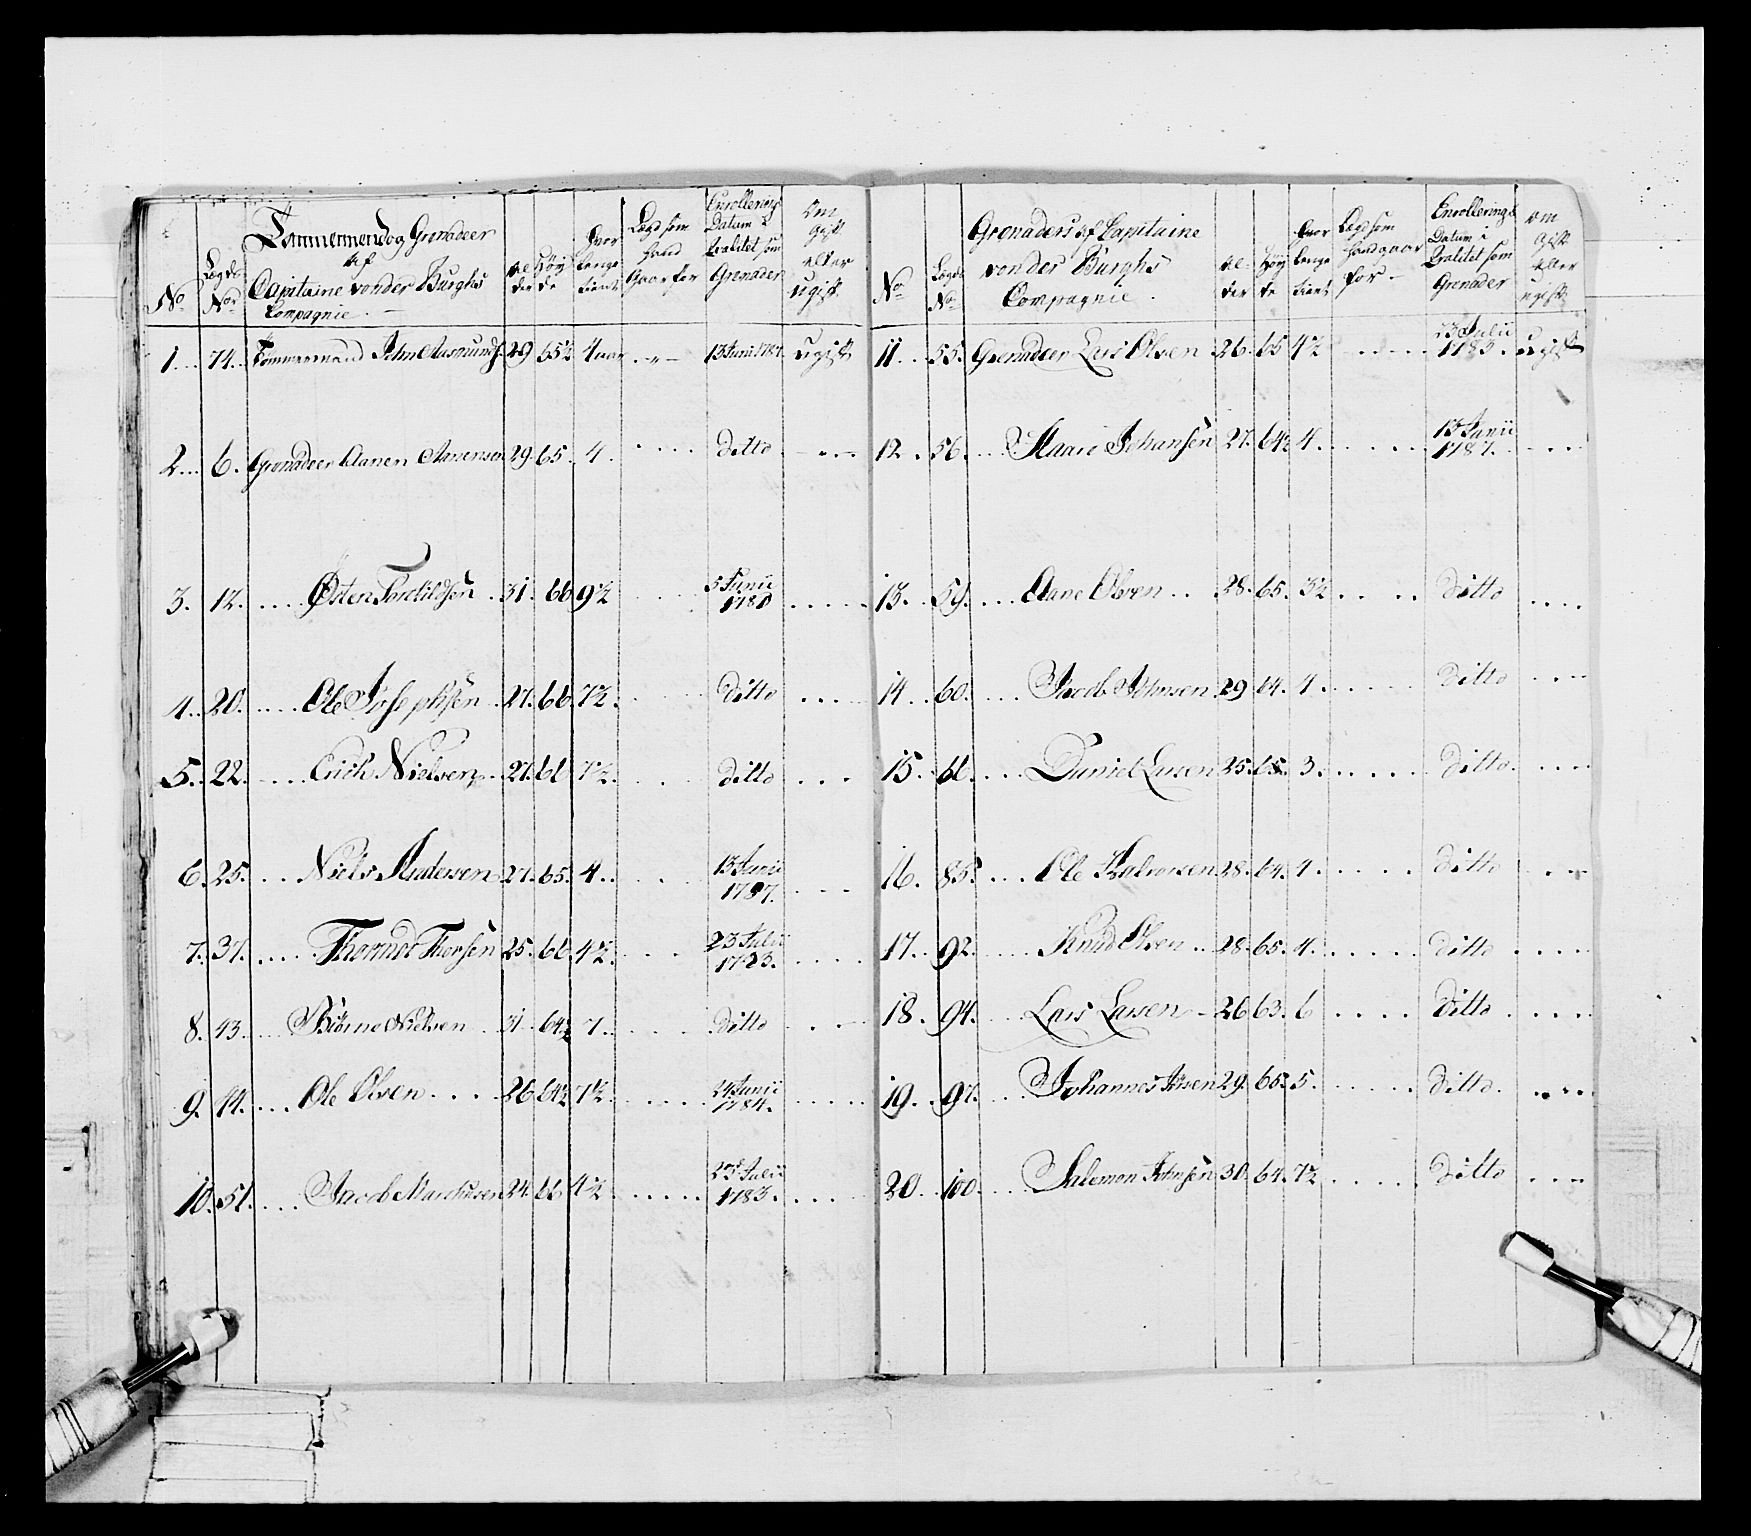 No
Lægds Nor
Tømmermend og Grenadeer
af
Capitaine von der Burghs
Compagnie.
Alder
Høyde
Hvor lenge tient
Lægd som hand gaar for
Enrollerings Datum i Qvalitet som Grenader
Om gift eller ugift
1. 74. Tømmermand John Aasmunds. 29 65½ 4 aar 13 Junii 1787. ugift
2. 6. Grenadeer Aanen Aanensen 29. 65. 4. Ditto
3. 12. Østen Torkildsen 31. 66 9½ 5 Junii 1781
4. 20. Ole Josephsen 27. 66. 7½. Ditto
5. 22. Erich Nielsen 27. 61 7½. Ditto
6. 25. Niels Andersen 27. 65. 4. 13 Junii 1787.
7. 37. Thomas Thorsen 25. 66. 4½. 23 Julii 1783.
8. 43. Biørne Nielsen 31 64½ 7. Ditto
9. 44. Ole Olsen 26 64½ 7½ 24 Junii 1784.
10. 51. Jacob Marcussen 24. 66 4½ 23 Julii 1783.
No
Lægds No
Grenaders af Capitaine
von der Burghs
Compagnie.
Alder
Høyde
Hvor lenge tient
Lægd som hand gaar for
Enrollerings Datum i Qvalitet som Grenader
om gift eller ugift
11. 55. Grenadeer Lars Olsen 26. 65 4½ 23 Julii 1783. ugift
12. 56. Haaro Johansen 27. 64½ 4. 13 Junii 1787.
13. 59. Aane Olsen 28. 65. 3½ Ditto
14. 60. Jacob Johnsen 29 64. 4. Ditto
15. 66. Daniel Larsen 25. 65. 3. Ditto
16. 85. Ole Halvorsen 28. 64. 4. Ditto
17. 92. Knud Olsen 28. 65. 4. Ditto
18. 94. Lars Larsen 26 63. 6 Ditto
19. 97. Johannes Olsen 29. 65. 5. Ditto
20. 100. Salemon Johnsen 30. 64. 7½ Ditto